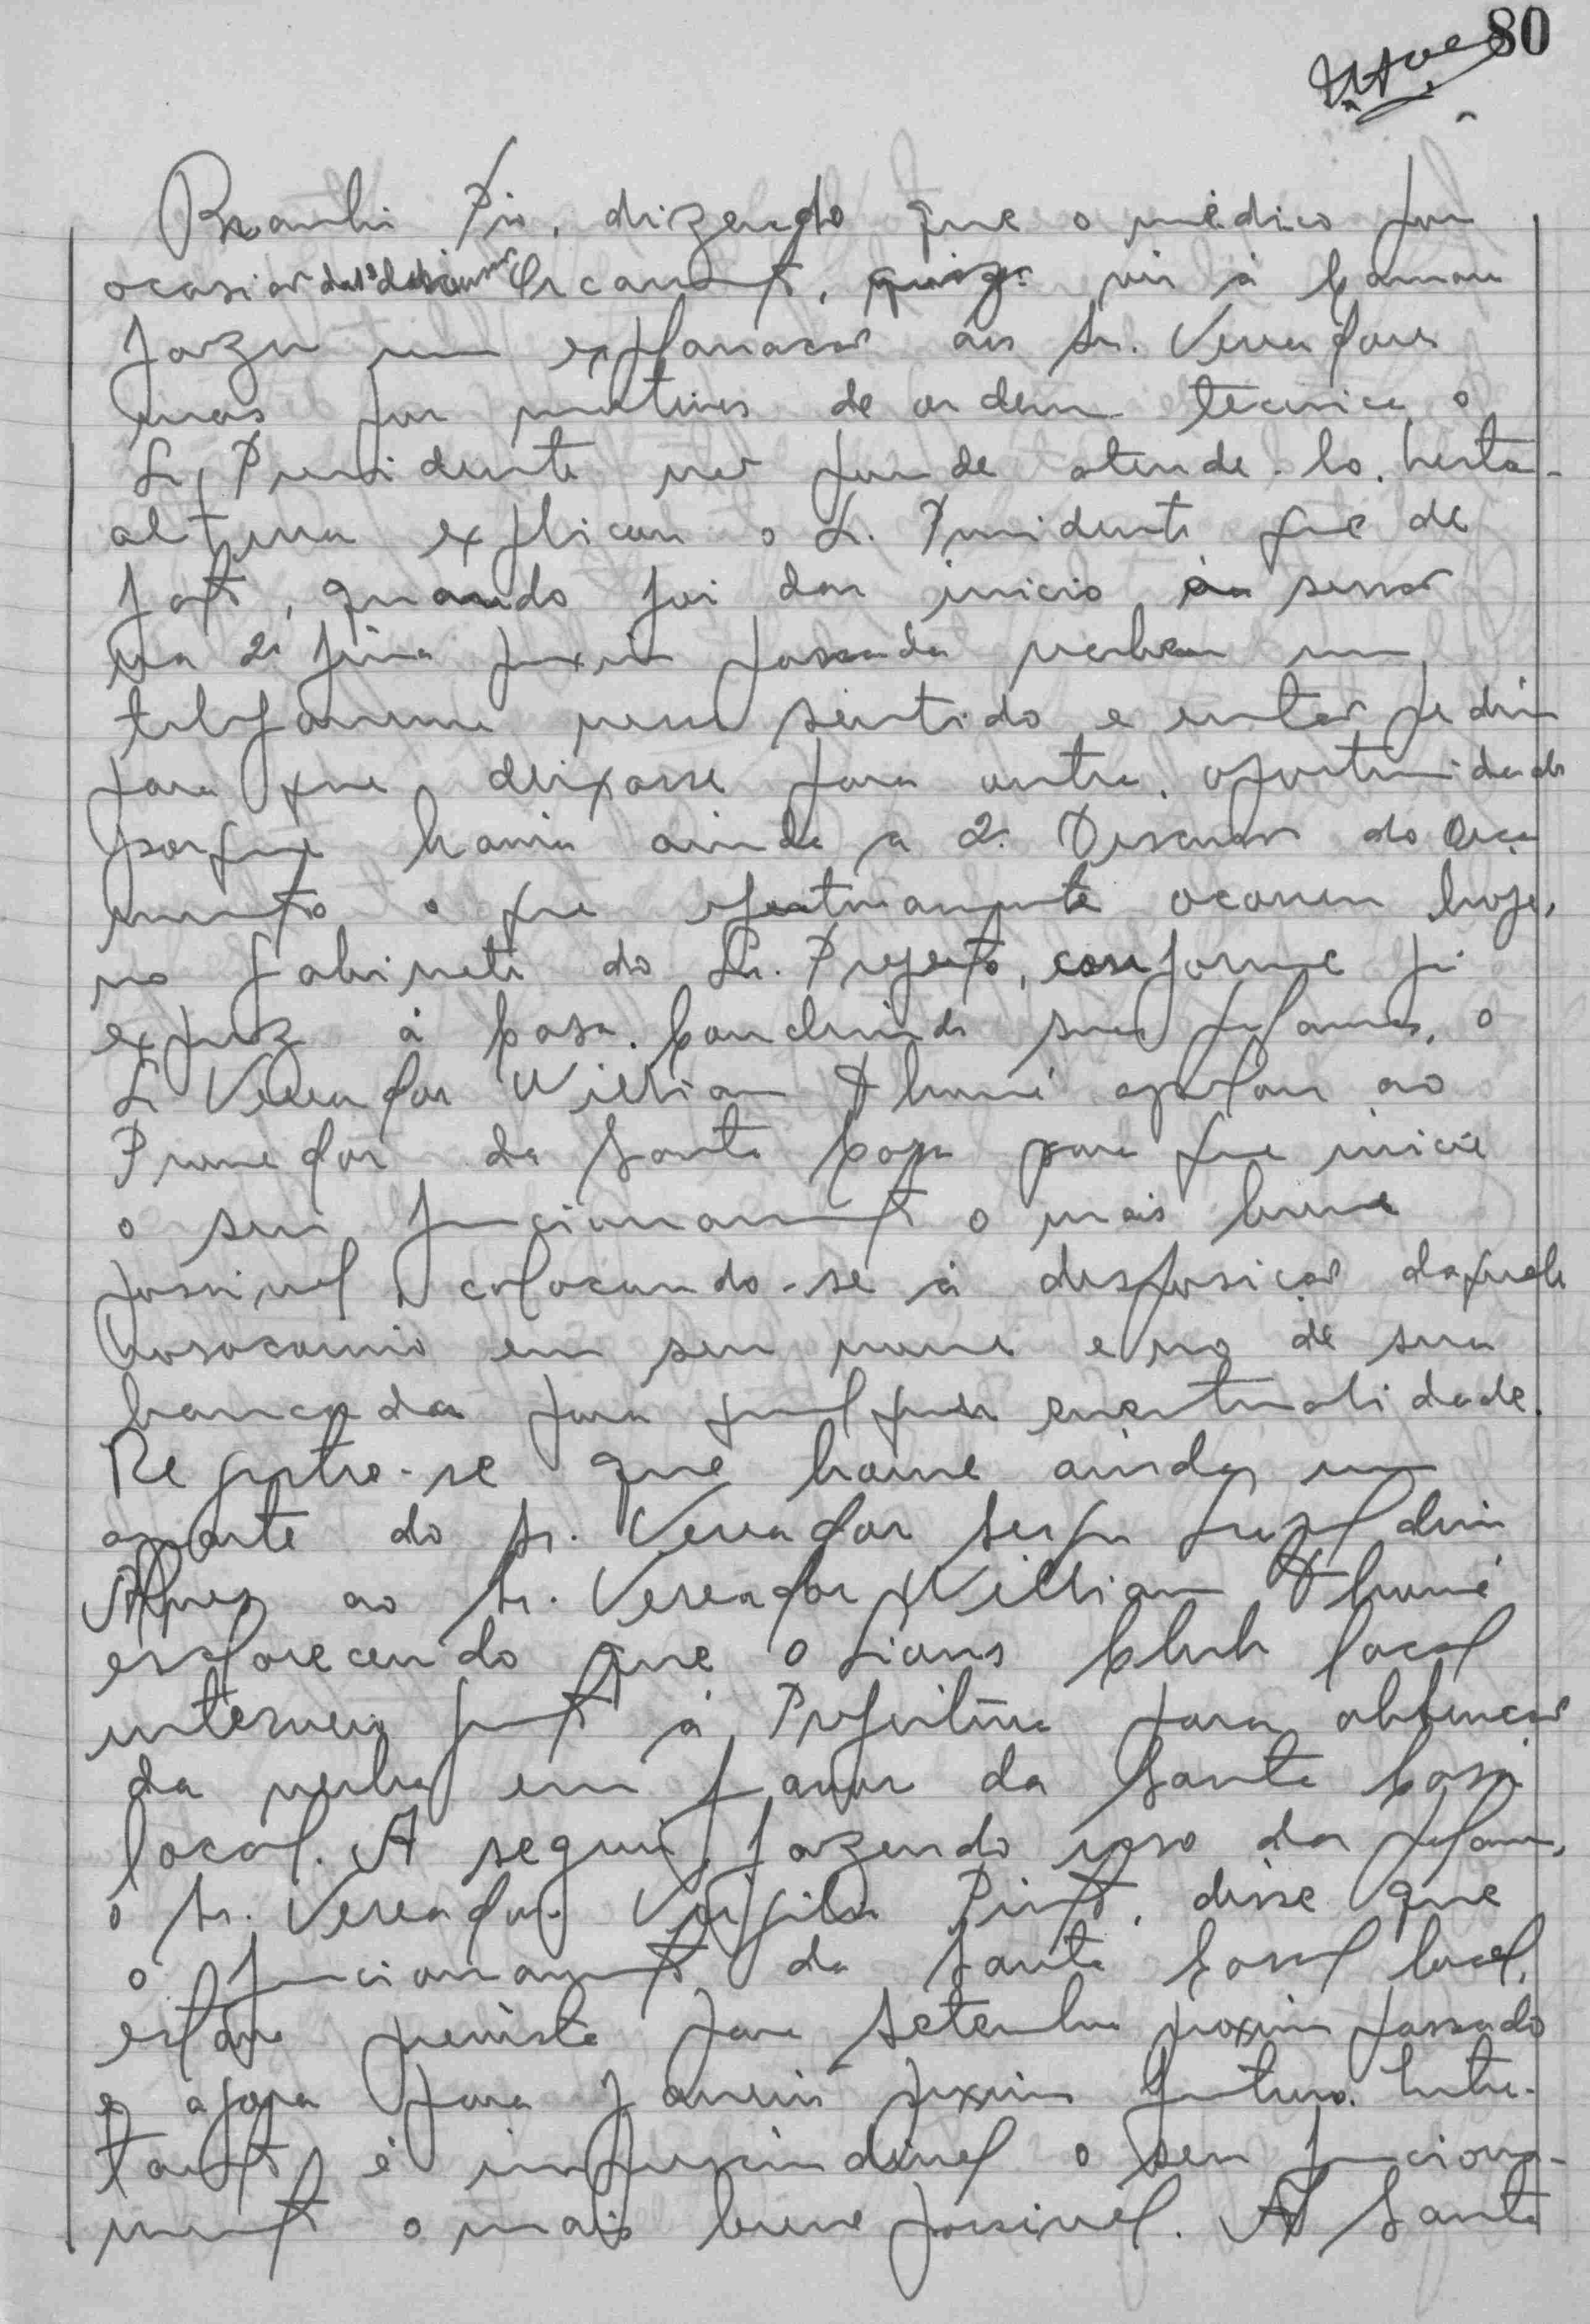 80
Pio, dizendo que o médico por
ocasião da 1ª discussão Orçamento, quiz vir à Camara
fazer uma explanação aos Srs. Vereadores
mas por motivos de ordem tecnica o
Sr. Presidente não poude atende-lo. Nesta
altura explicou o Sr. Presidente que de
fato, quando foi dar inicio à sessão
na 2ª feira proxima passada recebeu um
telefonema nesse sentido e então pediu
para que deixasse para outra oportunidade
porque havia ainda a 2ª Discussão do Orça
mento o que efetivamente ocorreu hoje,
no gabinete do Sr. Prefeito, conforme já
expuz à Casa. Concluindo suas palavras, o
Sr Vereador Willian Thomé apelou ao
Provedor da Santa Casa para que inicie
o seu funcionamento o mais breve
possivel, colocando-se à disposição daquele
nosocomio em seu nome e no de sua
bancada para qualquer eventualidade.
Registre-se que houve ainda um
aparte do Sr. Vereador
Alves ao Sr. Vereador Willian Thomé
esclarecendo que o Lions Club local
interveio junto à Prefeitura para obtenção
da verba em favor da Santa Casa
local. A seguir, fazendo uso da palavra,
o Sr. Vereador Virgilio Pinto, disse que
o funcionamento da Santa Casa local,
estava previsto para Setembro proximo passado
e agora para Janeiro proximo futuro. Entre-
tanto é imprescindivel o seu funciona-
mento o mais breve possivel. A Santa